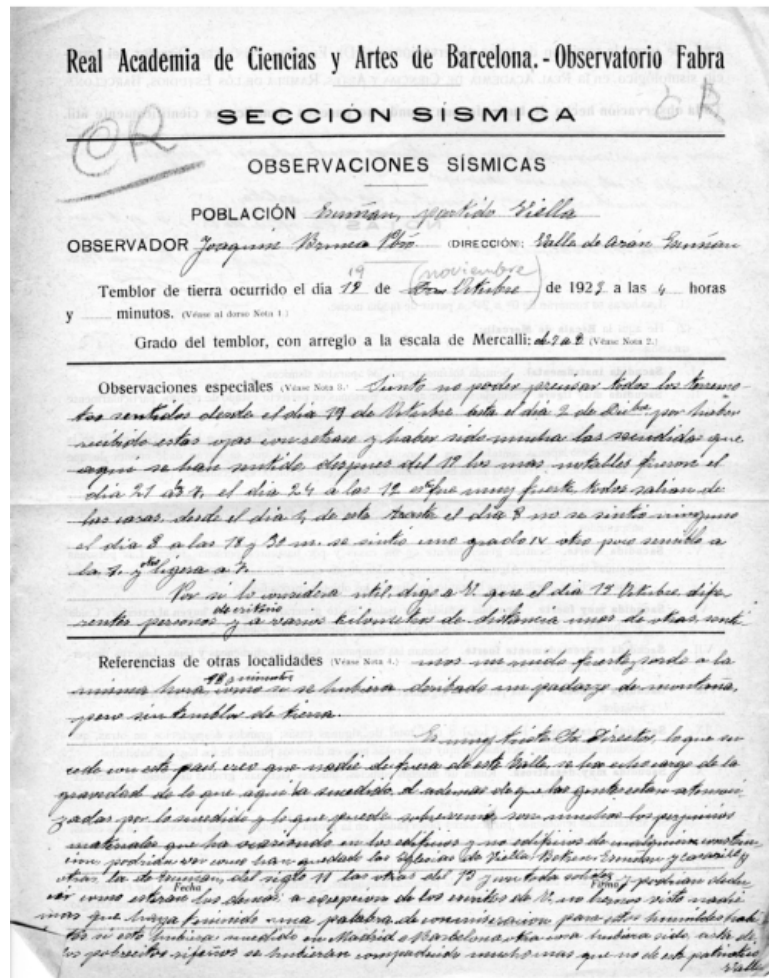 Real Academia de Ciencias y Artes de Barcelona.-Observatorio Fabra
SECCIÓN SÍSMICA
CR
CR
OBSERVACIONES SÍSMICAS
POBLACIÓN partido Viella
OBSERVADOR Joaquin (DIRECCIÓN: Valle de Arán
19 (noviembre)
Temblor de tierra ocurrido el día 19 de Octubre de 1923 a las 4 horas
y minutos. (Véase al dorso Nota 1.)
Grado del temblor, con arreglo a la escala de Mercalli: (Véase Nota 2.)
Observaciones especiales (Véase Nota 3.) Siento no poder precisar todos los terremo-
tos sentidos desde el día 19 de Octubre asta el día 2 de Dibre por haber
recibido estas ojas con retraso y haber sido muchas las sacudidas que
aqui se han sentido, despues del 19 los mas notables fueron el
dia 21 el dia 24 a las 12 fue muy fuerte todos salian de
las casas, desde el dia 1, de este asta el dia 8 no se sintió ninguno
el dia 8 a las 18 y 30 m. se sintio uno grado IV otro poco sencillo a
la 7.
Por si lo considera util, digo a V. que el dia 19 Octubre dife-
de criterio
rentes personas y a varios kilometros de distancia unos de otras, senti-
Referencias de otras localidades (Véase Nota 4.) mos un ruido fuerte, sordo a la
misma hora, como si se hubiera derribado un pedazo de montaña,
pero sin temblor de tierra.
Es muy triste Sr. Director, lo que su-
cede con este pais, creo que nadie de fuera de este Valle, se ha echo cargo de la
gravedad de lo que aqui ha sucedido, a ademas de que las gentes estan atemori-
zadas por lo sucedido y lo que puede sobrevenir, son muchos los perjuicios
materiales que ha ocasionado en los edificios y no edificios de cualquiera construc-
cion, podrida ver como han quedado las Iglesias de Viella
otras, del siglo 11 las otras del 13 y con toda solidez y podrian dedu-
Fecha Firma
cir como estaran los demas, a excepcion de los escritos de V. no hemos visto nadie
mas que haya tenido una palabra de conmiseracion para estos humildes habi-
tes si esto hubiera sucedido en Madrid o Barcelona otra cosa hubiera sido,
los pobrecitos se hubieran compadecido mucho mas que no de este
Valle